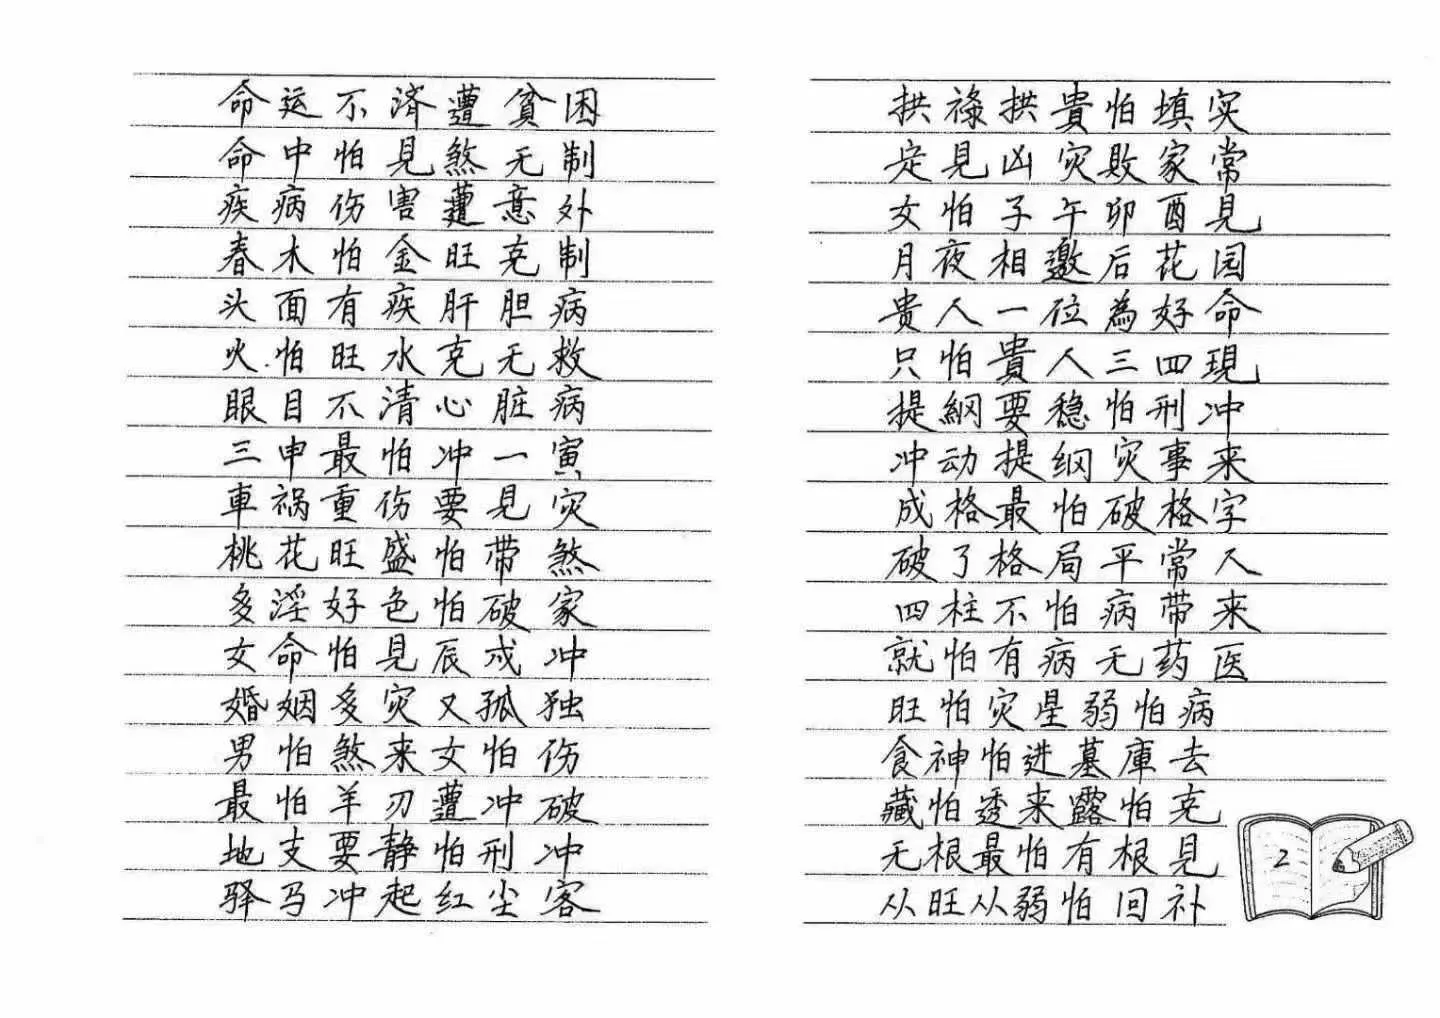 命运不濟遭貧困
命中怕見煞无制
疾病伤害遭意外
春木怕金旺克制
头面有疾肝胆病
火怕旺水克无救
眼目不清心脏病
三申最怕冲一寅
車祸重伤要見灾
桃花旺盛怕带煞
多淫好色怕破家
女命怕見辰戌冲
婚姻多灾又孤独
男怕煞来女怕伤
最怕羊刃遭冲破
地支要静怕刑冲
驿马冲起红尘客
拱祿拱貴怕填实
定見凶灾敗家常
女怕子午卯酉見
月夜相邀后花园
貴人一位為好命
只怕貴人三四現
提綱要稳怕刑冲
冲动提纲灾事来
成格最怕破格字
破了格局平常人
四柱不怕病带来
就怕有病无药医
旺怕灾星弱怕病
食神怕进墓庫去
藏怕透来露怕克
无根最怕有根見
从旺从弱怕回补
2